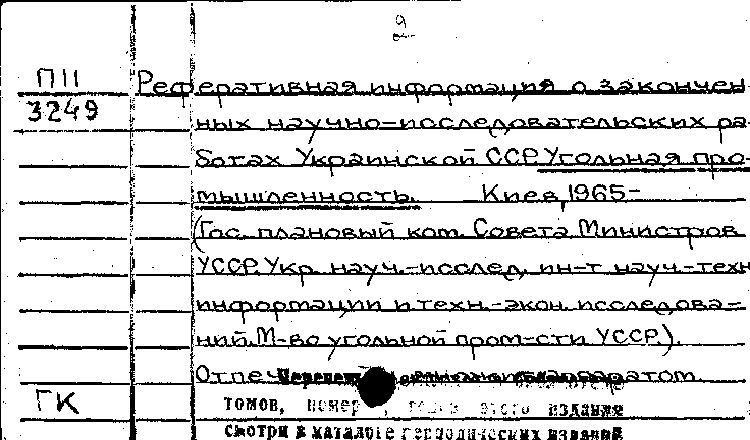 9
П11 Реферативная информация о закончен
3249 ных научно-исследовательских ра-
ботах Украинской ССР. Угольная про-
мышленность. Киев, 1965-
(Гос. плановый ком. Совета Министров
УССР. Укр. науч.-исслед. ин-т науч.-техн
информации и техн.-экон. исследова-
ний. М-во угольной пром-сти УССР).
Отпеч
ГК томов, номер этого издания
смотри в каталоге периодических изданий